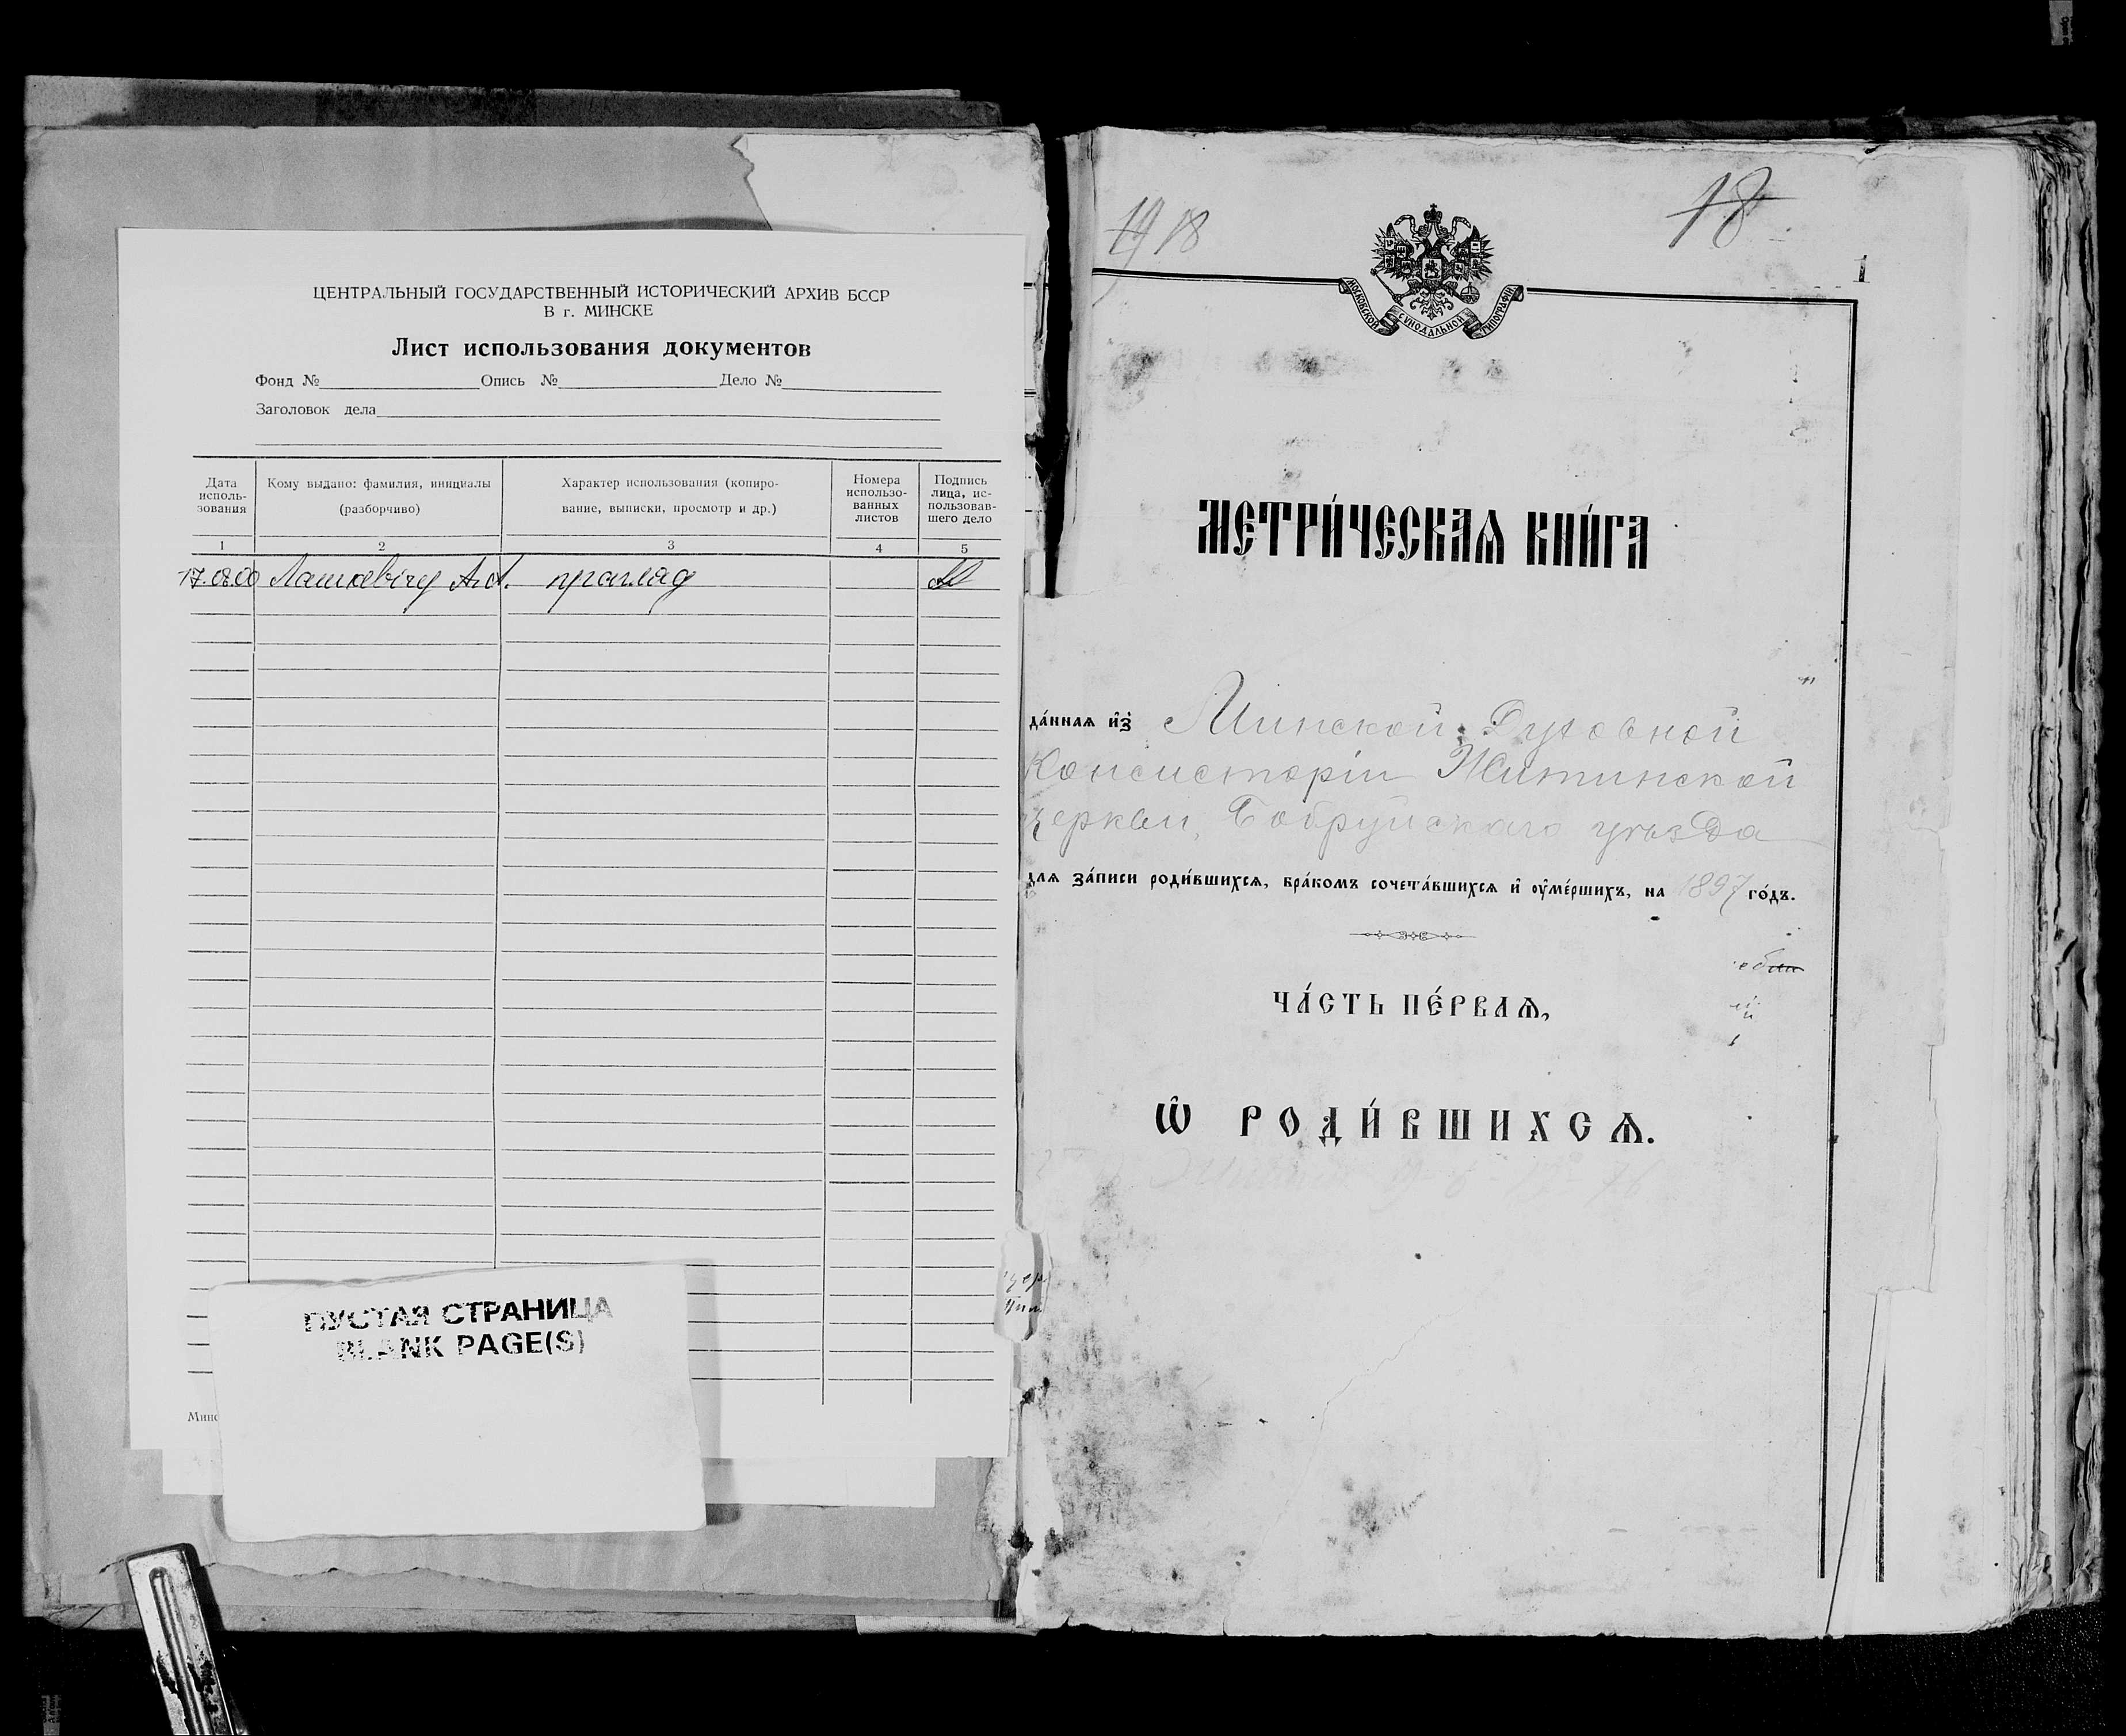 ЦЕНТРАЛЬНЫЙ ГОСУДАРСТВЕННЫЙ ИСТОРИЧЕСКИЙ АРХИВ БССР
В г. МИНСКЕ
Лист использования документов
Фонд № Опись № Дело №
Заголовок дела
Дата исполь-зования
Кому выдано: фамилия, инициалы (разборчиво)
Характер использования (копиро-вание, выписки, просмотр и др.)
Номера использо-ванных листов
Подпись лица, ис-пользовав-шего дело
1 2 3 4 5
17.08.00 Лашкевічу А.А. прагляд
ПУСТАЯ СТРАНИЦА
BLANK PAGE(S)
Минс
19 18
18
1
МОСКОВСКОЙ СѴНОДАЛЬНОЙ ТИПОГРАФІИ
МЕТРИ́ЧЕСКАѦ КНИ́ГА
да́ннаѧ и҆з̾ Минской Духовной
Консисторіи Житинской
церкви, Бобруйскаго уѣзда
для за́писи роди́вшихсѧ, бра́комъ сочета́вшихсѧ и҆ ᲂу҆ме́ршихъ, на 1897 го́дъ.
ЧА́СТЬ ПЕ́РВАѦ,
Ѡ҆ РОДИ́ВШИХСѦ.